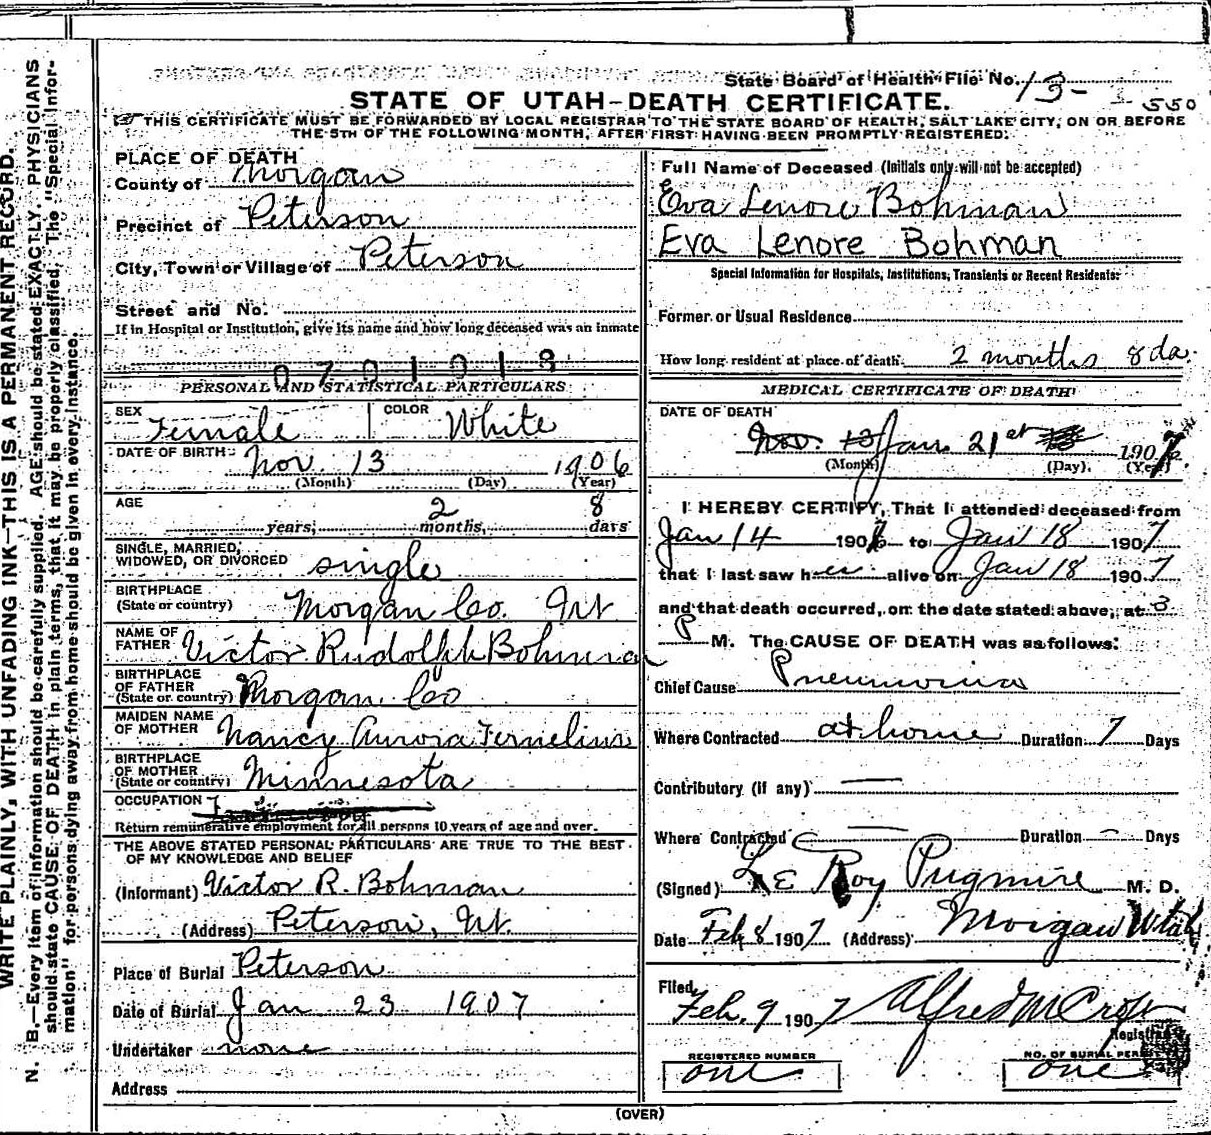 State Board of Health File No. 13- 550
STATE OF UTAH–DEATH CERTIFICATE.
THIS CERTIFICATE MUST BE FORWARDED BY LOCAL REGISTRAR TO THE STATE BOARD OF HEALTH, SALT LAKE CITY, ON OR BEFORE
THE 5TH OF THE FOLLOWING MONTH, AFTER FIRST HAVING BEEN PROMPTLY REGISTERED.
WRITE PLAINLY, WITH UNFADING INK—THIS IS A PERMANENT RECORD.
N. B.—Every item of information should be carefully supplied. AGE should be stated EXACTLY. PHYSICIANS
should state CAUSE OF DEATH in plain terms, that it may be properly classified. The "Special Infor-
mation" for persons dying away from home should be given in every instance.
PLACE OF DEATH
County of Morgan
Precinct of Peterson
City, Town or Village of Peterson
Street and No.
If in Hospital or Institution, give its name and how long deceased was an inmate
0701018
PERSONAL AND STATISTICAL PARTICULARS
SEX Female COLOR White
DATE OF BIRTH Nov. 13 1906
(Month) (Day) (Year)
AGE 2 8
years, months, days
SINGLE, MARRIED,
WIDOWED, OR DIVORCED single
BIRTHPLACE
(State or country) Morgan Co. Ut
NAME OF
FATHER Victor Rudolph Bohman
BIRTHPLACE
OF FATHER
(State or country) Morgan Co
MAIDEN NAME
OF MOTHER Nancy Aurora Fernelius
BIRTHPLACE
OF MOTHER
(State or country) Minnesota
OCCUPATION
Return remunerative employment for all persons 10 years of age and over.
THE ABOVE STATED PERSONAL PARTICULARS ARE TRUE TO THE BEST
OF MY KNOWLEDGE AND BELIEF
(Informant) Victor R. Bohman
(Address) Peterson, Ut.
Place of Burial Peterson
Date of Burial Jan 23 1907
Undertaker none
Address
Full Name of Deceased (Initials only will not be accepted)
Eva Lenore Bohman
Eva Lenore Bohman
Special Information for Hospitals, Institutions, Transients or Recent Residents:
Former or Usual Residence
How long resident at place of death 2 months 8 da.
MEDICAL CERTIFICATE OF DEATH
DATE OF DEATH
Nov. 13 Jan 21st 1907
(Month) (Day). (Year)
I HEREBY CERTIFY, That I attended deceased from
Jan 14 1907 to Jan 18 1907
that I last saw her alive on Jan 18 1907
and that death occurred, on the date stated above, at 3
P M. The CAUSE OF DEATH was as follows:
Chief Cause Pneumonia
Where Contracted at home Duration 7 Days
Contributory (if any) —
Where Contracted — Duration – Days
(Signed) Le Roy Pugmire M. D.
Date Feb 8 1907 (Address) Morgan Utah
Filed
Feb. 9 1907 Alfred M Croft
Registrar
REGISTERED NUMBER NO. OF BURIAL PERMIT
one one
(OVER)